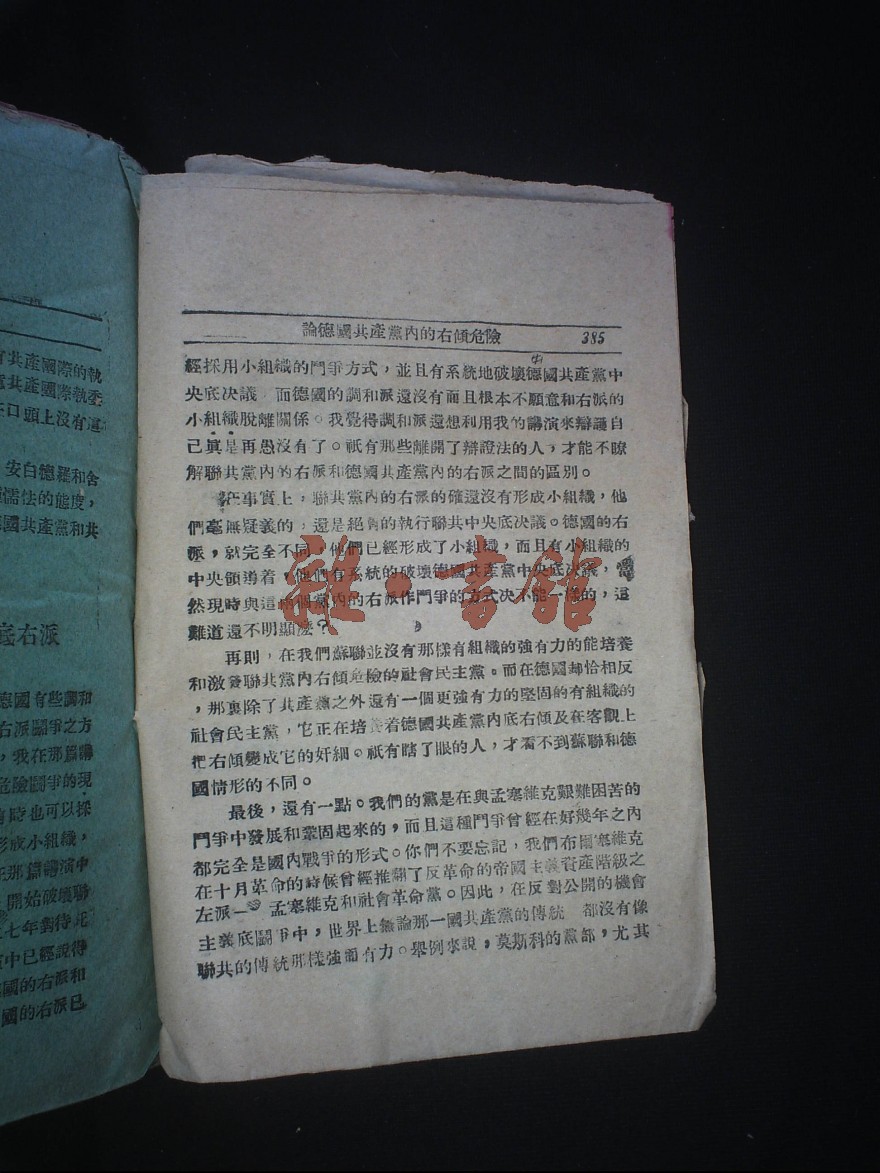 論德國共產黨內的右傾危險 385
經採用小組織的鬥爭方式，並且有系統地破壞德國共產黨中
央底决議 而德國的調和派還沒有而且根本不願意和右派的
小組織脫離關係。我覺得調和派還想利用我的講演來辯護自
己真是再愚沒有了。祇有那些離開了辯證法的人，才能不瞭
解聯共黨內的右派和德國共產黨內的右派之間的區别。
在事實上，聯共黨內的右派的確還沒有形成小組織，他
們毫無疑義的，還是絕對的執行聯共中央底决議。德國的右
派，就完全不同，他們已經形成了小組織，而且有小組織的
中央領導着，他們有系統的破壞德國共產黨中央底决議，當
然現時與這兩個黨內的右派作鬥爭的方式决不能一樣的，這
難道還不明顯麽？
再則，在我們蘇聯並沒有那樣有組織的強有力的能培養
和激發聯共黨內右傾危險的社會民主黨。而在德國却恰相反
，那裏除了共產黨之外還有一個更強有力的堅固的有組織的
社會民主黨，它正在培養着德國共產黨內底右傾及在客觀上
把右傾變成它的奸細。祇有瞎了眼的人，才看不到蘇聯和德
國情形的不同。
最後，還有一點。我們的黨是在與孟塞維克艱難困苦的
鬥爭中發展和鞏固起來的，而且這種鬥爭曾經在好幾年之內
都完全是國內戰爭的形式。你們不要忘記，我們布爾塞維克
在十月革命的時候曾經推翻了反革命的帝國主義資產階級之
左派—孟塞維克和社會革命黨。因此，在反對公開的機會
主義底鬬爭中，世界上無論那一國共產黨的傳統 都沒有像
聯共的傳統那樣強而有力。舉例來說，莫斯科的黨部，尤其
雜·書館
共產國際的執
共產國際執委
口頭上沒有這
安白德羅和舍
懦怯的態度，
國共產黨和共
底右派
德國有些調和
右派鬬爭之方
，我在那篇講
危險鬬爭的現
有時也可以採
形成小組織，
在那篇講演中
開始破壞聯
七年對待託
中已經說得
國的右派和
國的右派已